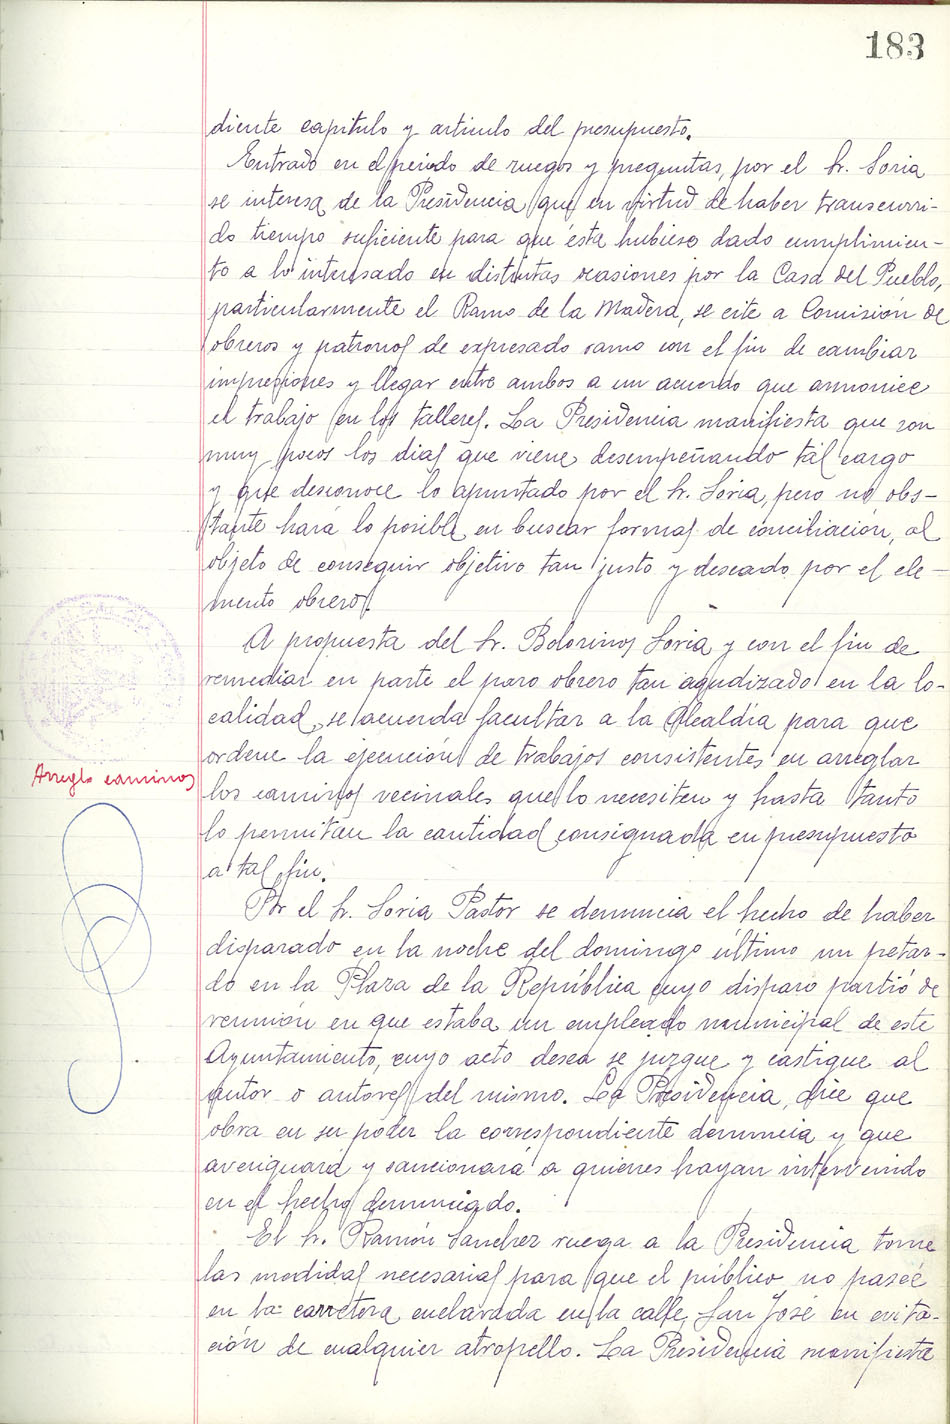 183
diente capitulo y articulo del presupuesto.
Entrado en el periodo de ruegos y preguntas, por el Sr. Soria
se interesa de la Presidencia que en virtud de haber transcurri-
do tiempo suficiente para que ésta hubiese dado cumplimien-
to a lo interesado en distintas ocasiones por la Casa del Pueblo,
particularmente el Ramo de la Madera, se cite a Comisión de
obreros y patronos de expresado ramo con el fin de cambiar
impresiones y llegar entre ambos a un acuerdo que armonice
el trabajo en los talleres. La Presidencia manifiesta que son
muy pocos los dias que viene desempeñando tal cargo
y que desconoce lo apuntado por el Sr. Soria, pero no obs-
tante hará lo posible en buscar formas de conciliación, al
objeto de conseguir objetivo tan justo y deseado por el ele-
mento obrero.
A propuesta del Sr. Bolorinos Soria y con el fin de
remediar en parte el paro obrero tan agudizado en la lo-
calidad, se acuerda facultar a la Alcaldía para que
ordene la ejecución de trabajos consistentes en arreglar
Arreglo caminos
los caminos vecinales que lo necesiten y hasta tanto
lo permitan la cantidad consignada en presupuesto
a tal fin.
Por el Sr. Soria Pastor se denuncia el hecho de haber
disparado en la noche del domingo último un petar-
do en la Plaza de la República cuyo disparo partió de
reunión en que estaba un empleado municipal de este
Ayuntamiento, cuyo acto desea se juzgue y castigue al
autor o autores del mismo. La Presidencia, dice que
obra en su poder la correspondiente denuncia y que
averiguará y sancionará a quienes hayan intervenido
en el hecho denunciado.
El Sr. Ramón Sanchez ruega a la Presidencia tome
las medidas necesarias para que el público no paseé
en la carretera enclavada en la calle San José en evita-
ción de cualquier atropello. La Presidencia manifiesta